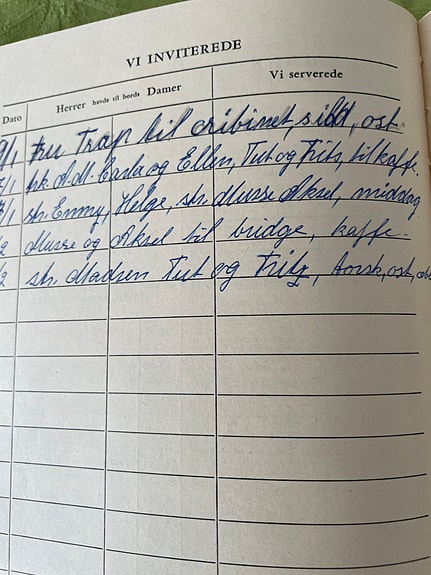 VI INVITEREDE
Dato Herrer havde til bords Damer Vi serverede
/1 Fru Trap til cribinet, sild, ost.
/1 A. M. Carla og Ellen, Tut og Fritz, til kaffe.
/1 Emmy, Helge, Musse Aksel, middag
2 Musse og Aksel til bridge, kaffe.
2 Madsen Tut og Fritz, torsk, ost,